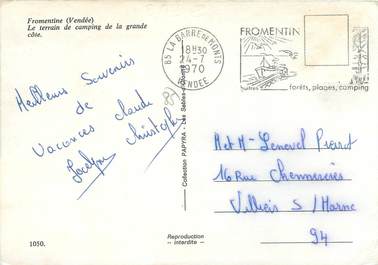 Fromentine (Vendée)
Le terrain de camping de la grande
côte.
85 LA BARRE DE MONTS
18H30
24-7
1970
VENDEE
FROMENTIN
huîtres
forêts, plages, camping
Meilleurs Souvenirs
de
Vacances Claude
Jocelyne Christophe
Collection PAPYRA - Les Sables
Met M- Pierrot
16 Rue
Villiers S/Marne
94
1050.
Reproduction
- interdite -